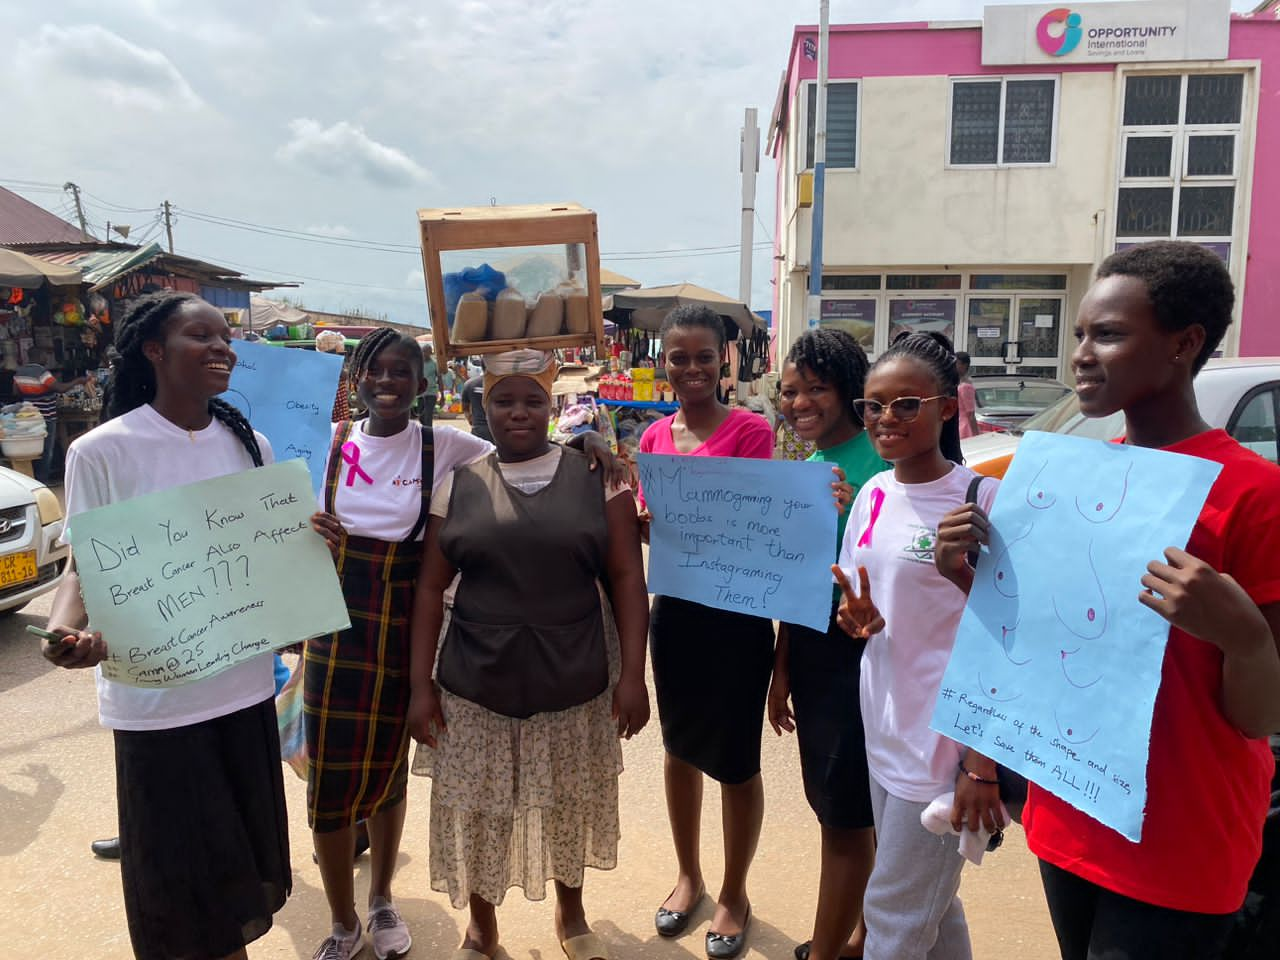 OPPORTUNITY
International
Savings and Loans
Obesity
Aging
Did You Know That
Breast Cancer Also Affect
MEN???
# Breast Cancer Awareness
## Cama @ 25
## Young Women Leading Change
CR
811-16
#Mammogramming your
boobs is more
important than
Instagraming
Them!
# Regardless of the shape and size,
Let's Save them ALL!!!